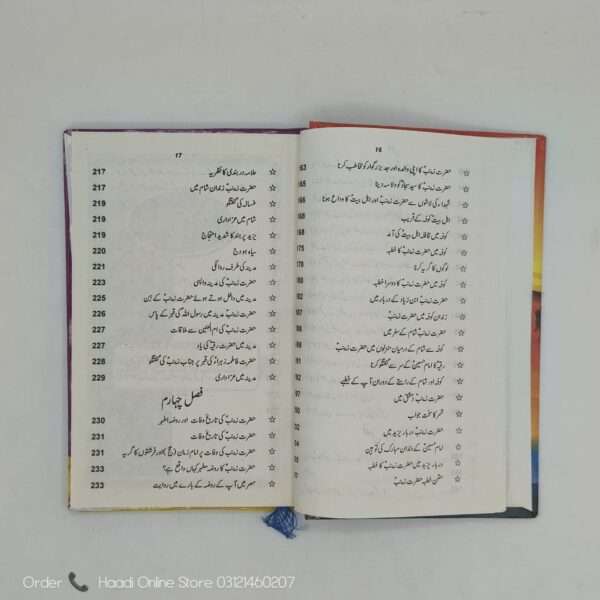 16
☆ حضرت زینبؑ کا اپنی والدہ اور جد بزرگوار کو مخاطب کرنا 163
☆ حضرت زینبؑ کا سید سجادؑ کو دلاسہ دینا
☆ شہداء کی لاشوں سے حضرت زینبؑ اور اہل بیتؑ کا وداع ہونا
☆ اہل بیتؑ کوفہ کے قریب
☆ کوفہ میں قافلہ اہل بیتؑ کی آمد
☆ کوفہ میں حضرت زینبؑ کا خطبہ
☆ لوگوں کا گریہ کرنا
☆ کوفہ میں حضرت زینبؑ کا دوسرا خطبہ
☆ حضرت زینبؑ ابن زیاد کے دربار میں
☆ زندان کوفہ میں حضرت زینبؑ
☆ حضرت زینبؑ شام کے سفر میں
☆ کوفہ سے شام کے درمیان منزلوں میں حضرت زینبؑ
☆ رقیہؑ کا امام حسینؑ کے سر سے گفتگو کرنا
☆ کوفہ اور شام کے راستے کے دوران آپ کے خطبے
☆ حضرت زینبؑ دمشق میں
☆ شمر کا سخت جواب
☆ حضرت زینبؑ دربار یزید میں
☆ امام حسینؑ کے دندان مبارک کی توہین
☆ دربار یزید میں حضرت زینبؑ کا خطبہ
☆ متن خطبہ حضرت زینبؑ
17
☆ علامہ دربندی کا نظریہ 217
☆ حضرت زینبؑ زندان شام میں 217
☆ غسالہ کی گفتگو 219
☆ شام میں عزاداری 219
☆ یزید پر ہند کا شدید احتجاج 219
☆ سیاہ ہودج 220
☆ مدینہ کی طرف روانگی 221
☆ حضرت زینبؑ کی مدینہ واپسی 223
☆ مدینہ میں داخل ہوتے ہوئے حضرت زینبؑ کے بین 225
☆ مدینہ میں رسول اللہؐ کی قبر کے پاس 226
☆ حضرت زینبؑ کی ام البنینؑ سے ملاقات 227
☆ مدینہ میں رقیہؑ کی یاد 227
☆ حضرت فاطمہ زہراءؑ کی قبر پر جناب زینبؑ کی گفتگو 228
☆ مدینہ میں عزاداری 229
فصل چہارم
☆ حضرت زینبؑ کی تاریخ وفات اور روضہ اطہر 230
☆ حضرت زینبؑ کی تاریخ وفات 231
☆ حضرت زینبؑ کی وفات پر امام زمانؑ (عج) اور فرشتوں کا گریہ 231
☆ حضرت زینبؑ کا روضہ مطہر کہاں واقع ہے؟ 233
☆ مصر میں آپ کے روضہ کے بارے میں روایت 233
Order Haadi Online Store 03121460207